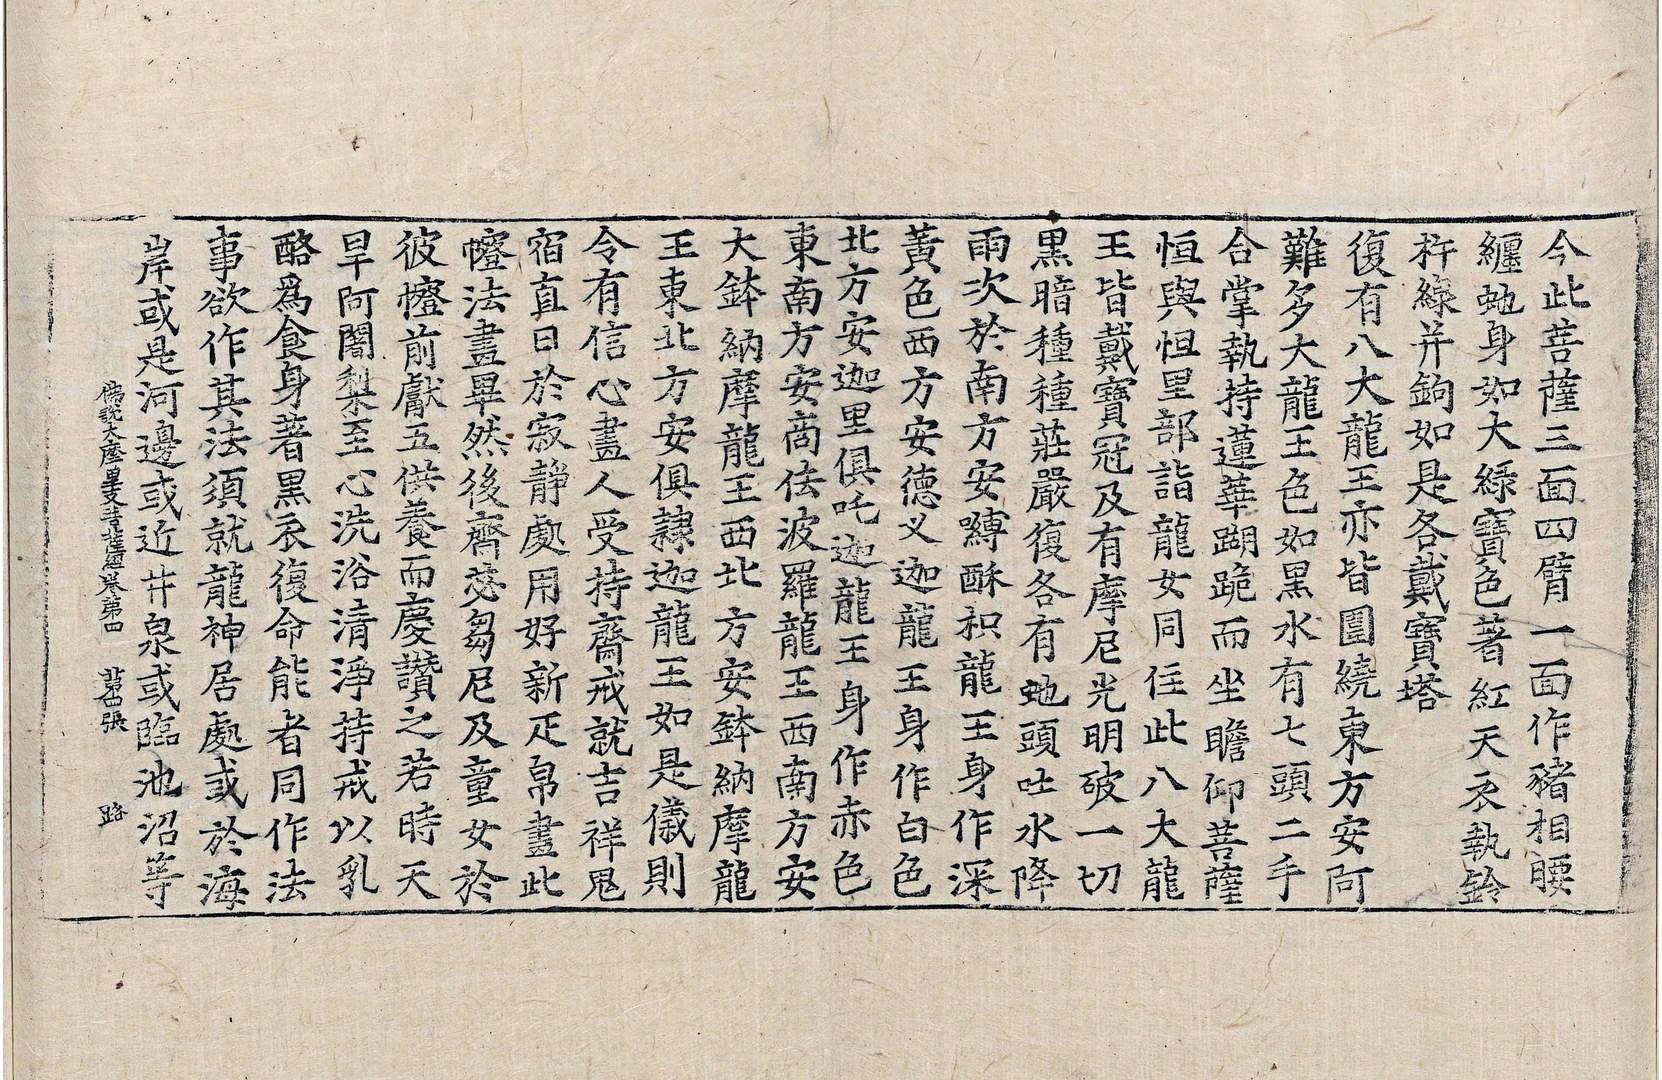 今此菩薩三面四臂一面作猪相腰
纒虵身如大緑寶色著紅天衣執鈴
杵緑并鉤如是各戴寶塔
復有八大龍王亦皆圍繞東方安阿
難多大龍王色如黒水有七頭二手
合掌執持蓮華䠒跪而坐瞻仰菩薩
恒與恒里部詣龍女同住此八大龍
王皆戴寶冠及有摩尼光明破一切
黒暗種種莊嚴復各有虵頭吐水降
雨次於南方安嚩酥枳龍王身作深
黃色西方安德义迦龍王身作白色
北方安迦里俱吒迦龍王身作赤色
東南方安啇佉波羅龍王西南方安
大鉢納摩龍王西北方安鉢納摩龍
王東北方安俱隷迦龍王如是儀則
令有信心畫人受持齋戒就吉祥鬼
宿直日於寂靜處用好新疋帛畫此
㡧法畫畢然後齋苾芻尼及童女於
彼㡧前獻五供養而慶讚之若時天
旱阿闍梨至心洗浴清淨持戒以乳
酪爲食身著黒衣復命能者同作法
事欲作其法須就龍神居處或於海
岸或是河邊或近井泉或臨池沼等
佛說大摩里支菩薩經卷第四 第四張 路